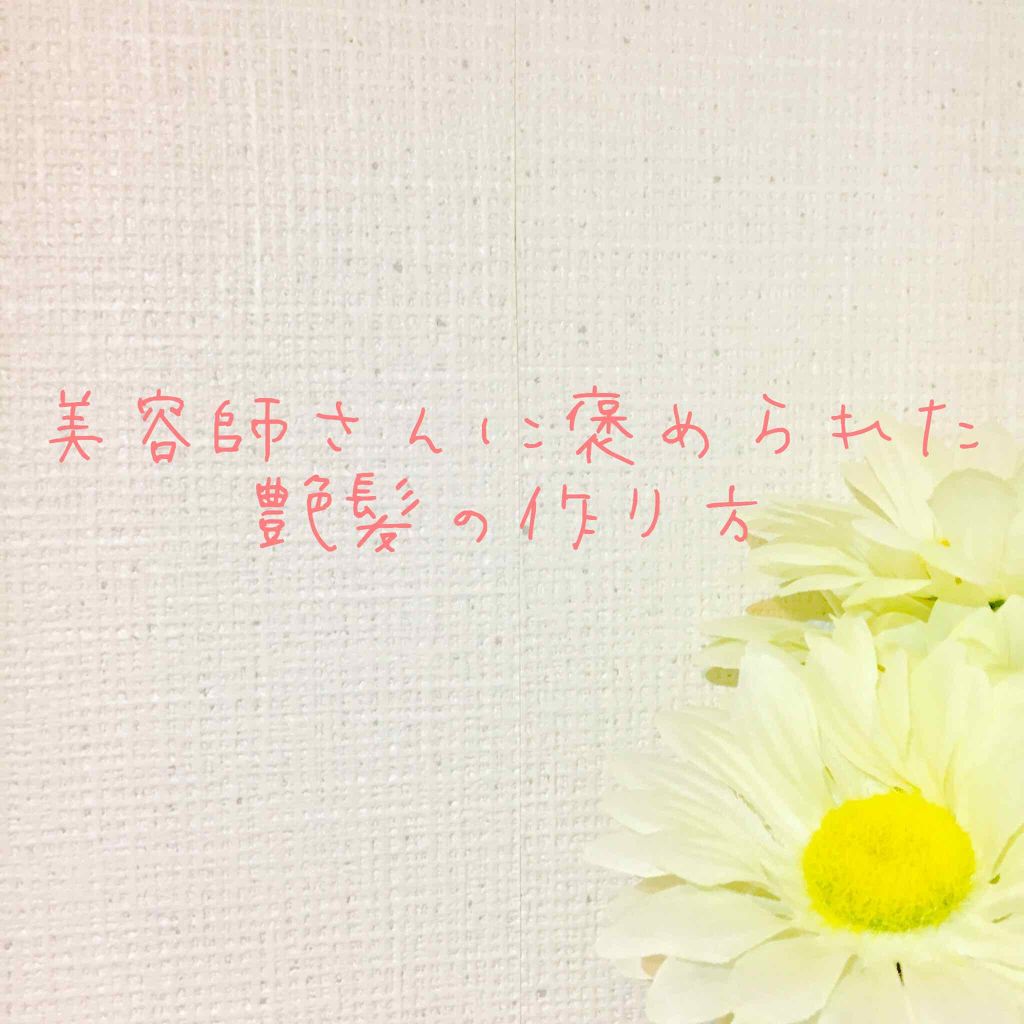 美容師さんに褒められた
艶髪の作り方